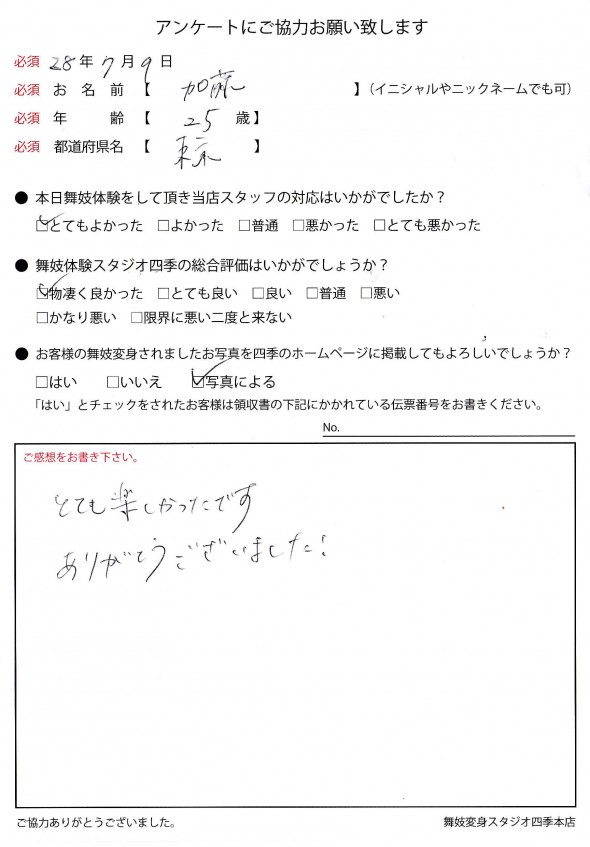 アンケートにご協力お願い致します
必須 28年7月9日
必須 お名前【 加藤 】（イニシャルやニックネームでも可）
必須 年齢【 25 歳】
必須 都道府県名【 東京 】
● 本日舞妓体験をして頂き当店スタッフの対応はいかがでしたか？
☑とてもよかった □よかった □普通 □悪かった □とても悪かった
● 舞妓体験スタジオ四季の総合評価はいかがでしょうか？
☑物凄く良かった □とても良い □良い □普通 □悪い
□かなり悪い □限界に悪い二度と来ない
● お客様の舞妓変身されましたお写真を四季のホームページに掲載してもよろしいでしょうか？
□はい □いいえ ☑写真による
「はい」とチェックをされたお客様は領収書の下記にかかれている伝票番号をお書きください。
No.
ご感想をお書き下さい。
とても楽しかったです
ありがとうございました！
ご協力ありがとうございました。
舞妓変身スタジオ四季本店